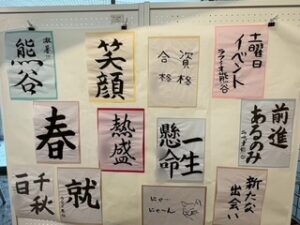 土曜日
イベント
ラフィオ熊谷
資格
合格
笑顔
激暑!!
熊谷
前進
あるのみ
一生
懸命
熱盛
春
新たな
出会い
にゃー
にゃーん
就
一日
千秋